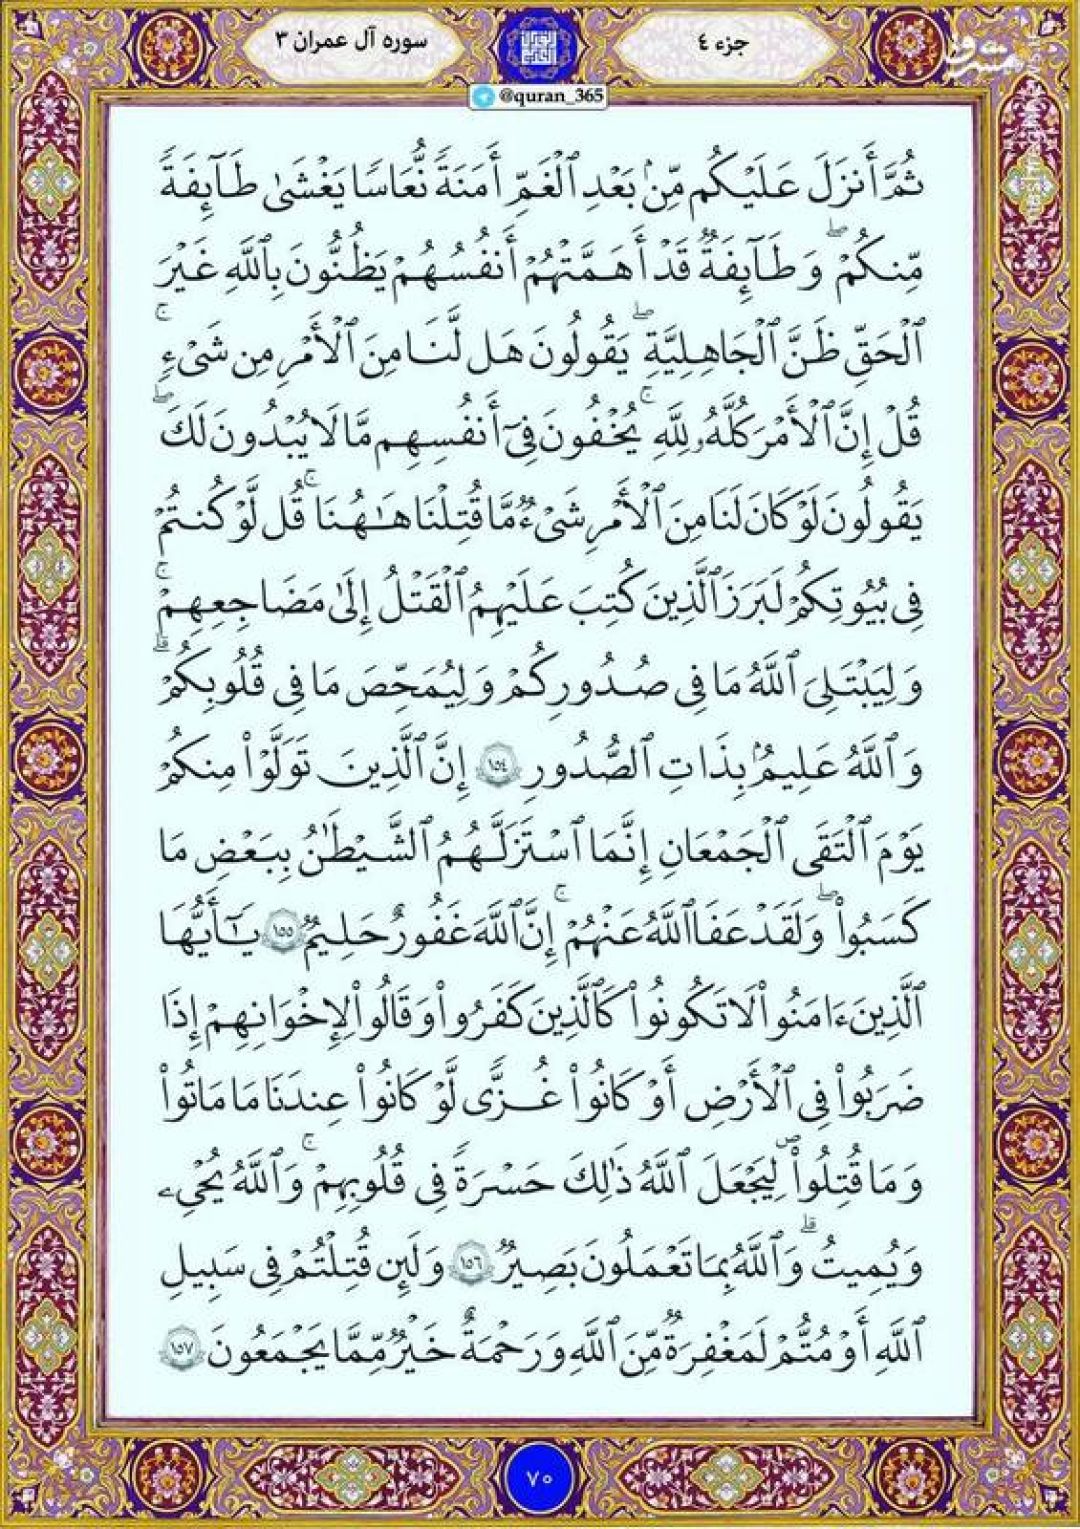 جزء ٤
سوره آل عمران ٣
@quran_365
مشرق
ثُمَّ أَنزَلَ عَلَيْكُم مِّنۢ بَعْدِ ٱلْغَمِّ أَمَنَةً نُّعَاسًا يَغْشَىٰ طَآئِفَةً
مِّنكُمْ ۖ وَطَآئِفَةٌ قَدْ أَهَمَّتْهُمْ أَنفُسُهُمْ يَظُنُّونَ بِٱللَّهِ غَيْرَ
ٱلْحَقِّ ظَنَّ ٱلْجَاهِلِيَّةِ ۖ يَقُولُونَ هَل لَّنَا مِنَ ٱلْأَمْرِ مِن شَىْءٍ ۗ
قُلْ إِنَّ ٱلْأَمْرَ كُلَّهُۥ لِلَّهِ ۗ يُخْفُونَ فِىٓ أَنفُسِهِم مَّا لَا يُبْدُونَ لَكَ ۖ
يَقُولُونَ لَوْ كَانَ لَنَا مِنَ ٱلْأَمْرِ شَىْءٌ مَّا قُتِلْنَا هَـٰهُنَا ۗ قُل لَّوْ كُنتُمْ
فِى بُيُوتِكُمْ لَبَرَزَ ٱلَّذِينَ كُتِبَ عَلَيْهِمُ ٱلْقَتْلُ إِلَىٰ مَضَاجِعِهِمْ ۖ
وَلِيَبْتَلِىَ ٱللَّهُ مَا فِى صُدُورِكُمْ وَلِيُمَحِّصَ مَا فِى قُلُوبِكُمْ ۗ
وَٱللَّهُ عَلِيمٌۢ بِذَاتِ ٱلصُّدُورِ ١٥٤ إِنَّ ٱلَّذِينَ تَوَلَّوْا۟ مِنكُمْ
يَوْمَ ٱلْتَقَى ٱلْجَمْعَانِ إِنَّمَا ٱسْتَزَلَّهُمُ ٱلشَّيْطَـٰنُ بِبَعْضِ مَا
كَسَبُوا۟ ۖ وَلَقَدْ عَفَا ٱللَّهُ عَنْهُمْ ۗ إِنَّ ٱللَّهَ غَفُورٌ حَلِيمٌ ١٥٥ يَـٰٓأَيُّهَا
ٱلَّذِينَ ءَامَنُوا۟ لَا تَكُونُوا۟ كَٱلَّذِينَ كَفَرُوا۟ وَقَالُوا۟ لِإِخْوَٰنِهِمْ إِذَا
ضَرَبُوا۟ فِى ٱلْأَرْضِ أَوْ كَانُوا۟ غُزًّى لَّوْ كَانُوا۟ عِندَنَا مَا مَاتُوا۟
وَمَا قُتِلُوا۟ لِيَجْعَلَ ٱللَّهُ ذَٰلِكَ حَسْرَةً فِى قُلُوبِهِمْ ۗ وَٱللَّهُ يُحْىِۦ
وَيُمِيتُ ۗ وَٱللَّهُ بِمَا تَعْمَلُونَ بَصِيرٌ ١٥٦ وَلَئِن قُتِلْتُمْ فِى سَبِيلِ
ٱللَّهِ أَوْ مُتُّمْ لَمَغْفِرَةٌ مِّنَ ٱللَّهِ وَرَحْمَةٌ خَيْرٌ مِّمَّا يَجْمَعُونَ ١٥٧
٧٠